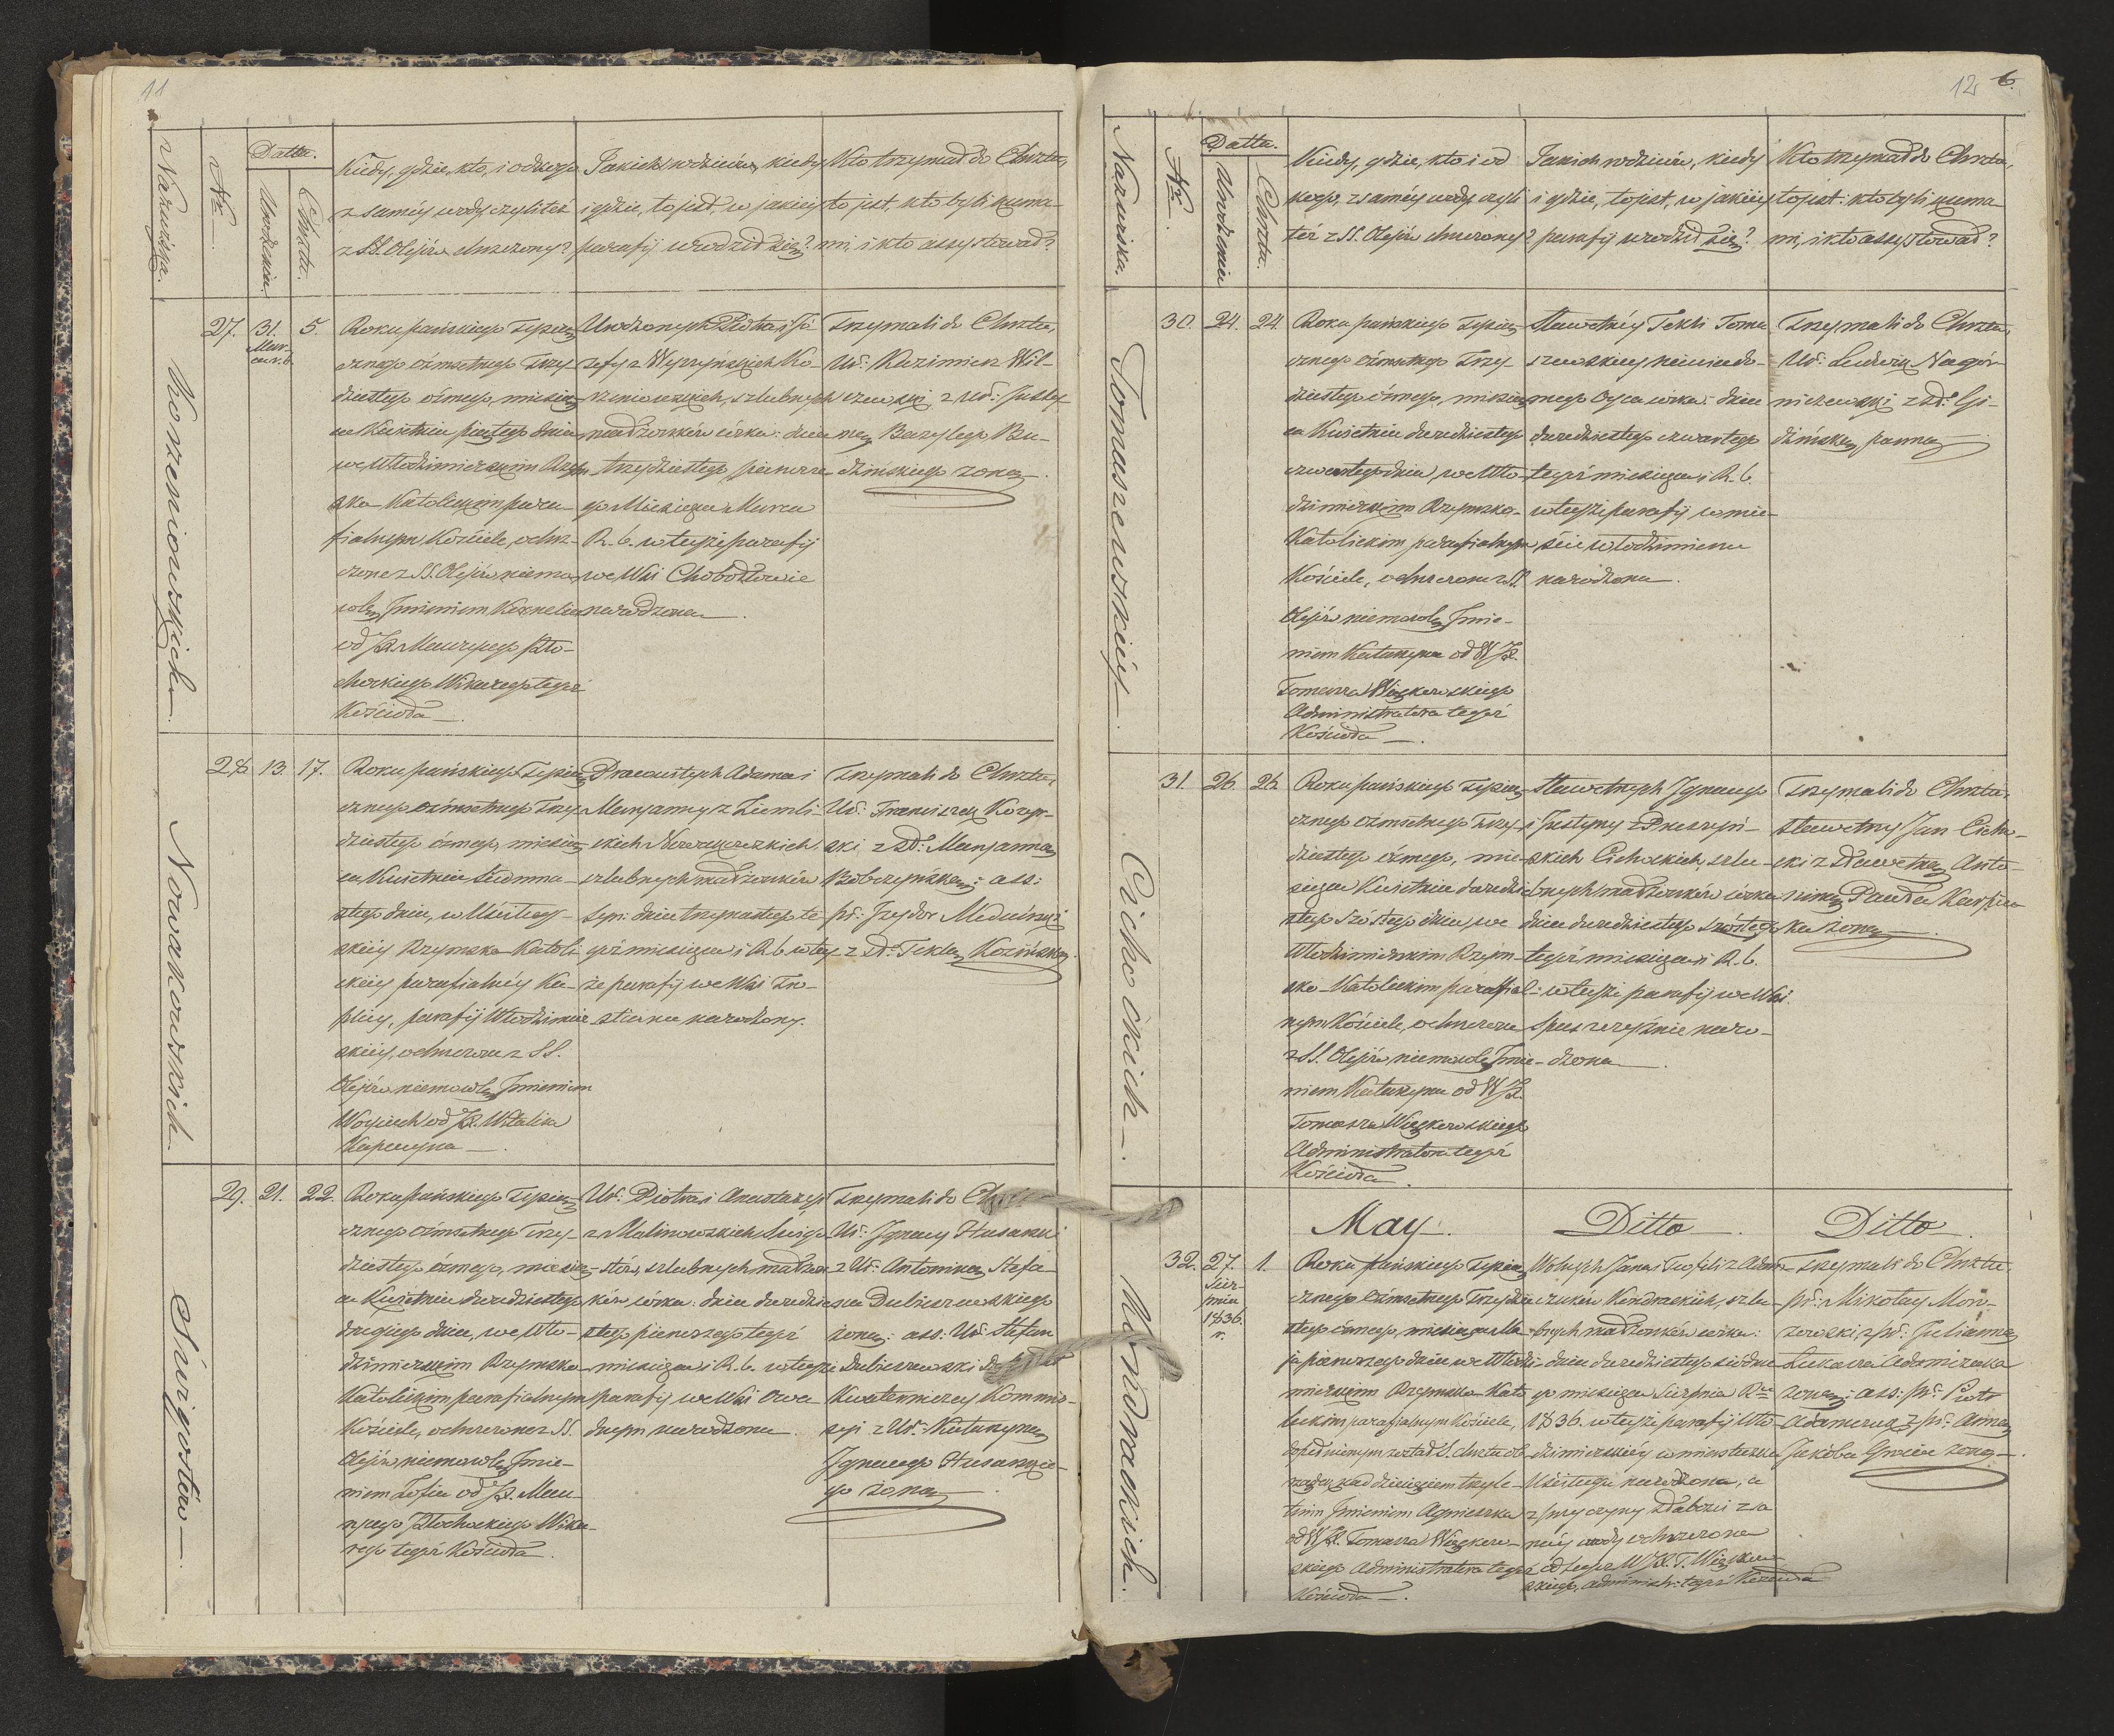 11
Nazwiska.
Nro
Datta.
Urodzenia.
Chrztu.
Kiedy, gdzie, kto, i od czego
z saméy wody czyli też
z SS. Olejów chrzczony?
Jakich rodziców, kiedy
i gdzie, to jest, w jakiéy
parafij urodził się?
Kto trzymał do Chrztu,
to jest, kto byli kuma-
mi, i kto assystował?
Korzeniowskich.
27.
31.
Mar-
ca r. b.
5.
Roku pańskiego tysiącz-
cznego ośmsetnego trzy-
dziestego ósmego, miesią-
ca Kwietnia piątego dnia
we Włodzimierskim Rzym-
sko Katolickim para-
fialnym Kościele, ochrz-
czone z SS. Olejów niemo-
wlę Jmieniem Kornelia
od JX. Maurycego Pło-
chockiego Wikarego tegoż
Kościoła.
Urodzonych Piotra i Jó-
zefy z Wyrzyńskich Ko-
rzeniowskich, szlubnych
małżonków córka: dnia
trzydziestego pierwsze-
go Miesiąca Marca
R. b. w tejże parafij
we Wsi Chobołtowie
narodzona.
Trzymali do Chrztu,
Ur: Kazimierz Wil-
czewski, z Ur: Justy-
ną Bazylego Bu-
dzińskiego żoną.
Nowakowskich.
28
13.
17.
Roku pańskiego tysią-
cznego ośmsetnego trzy-
dziestego ósmego, miesią-
ca Kwietnia siedmna-
stego dnia, w Uściług-
skiéy Rzymsko-Katoli-
ckiéy parafialnéy Ka-
plicy, parafij Włodzimier-
skiéy, ochrzczone z SS.
Olejów niemowlę Jmieniem
Wojciech od JX. Witalisa
Kapucyna.
Pracowitych Adama i
Maryanny z
Nowakowskich
szlubnych małżonków
syn: dnia trzynastego te-
goż miesiąca i R. b. w tey-
że parafij we Wsi
narodzony.
Trzymali do Chrztu,
Ur: Franciszek Kozyr-
ski z Sł: Maryanną
Bobrzyńską: ass:
pr: Jzydor
z Sł: Teklą Kozińską.
Świrgostów.
29.
21.
22.
Roku pańskiego tysią-
cznego ośmsetnego trzy-
dziestego ósmego, miesią-
ca Kwietnia dwudziestego
drugiego dnia, we Wło-
dzimierskim Rzymsko-
Katolickim parafialnym
Kościele, ochrzczone z SS.
Olejów niemowlę Jmie-
niem Zofia od JX. Mau-
rycego Płochockiego Wika-
rego tegoż Kościoła.
Ur: Piotra i Anastazyi
z Malinowskich Świrgo-
stów, szlubnych małżon-
ków córka: dnia dwudzie-
stego pierwszego tegoż
miesiąca i R. b. w tejże
parafij we Wsi Owa-
dnym narodzona.
Trzymali do
Ur: Jgnacy Husarski
z Ur: Antoniną Stefa-
na Dubiszewskiego
żoną: ass: Ur: Stefan
Dubiszewski
Kwatermierczy Kommis-
syi z Ur: Katarzyną
Jgnacego Husarskie-
go żoną.
12 6.
Nazwiska.
Nro
Datta.
Urodzenia
Chrztu.
Kiedy, gdzie, kto i od
kogo, z saméy wody czyli
téż z SS. Olejów chrzczony?
Jakich rodziców, kiedy
i gdzie, to jest, w jakiéy
parafij urodził się?
Kto trzymał do Chrztu,
to jest: kto byli kuma-
mi, i kto assystował?
Tomaszewskiéy.
30.
24.
24.
Roku pańskiego tysią-
cznego ośmsetnego trzy-
dziestego ósmego, miesią-
ca Kwietnia dwudziestego
czwartego dnia, we Wło-
dzimierskim Rzymsko-
Katolickim parafialnym
Kościele, ochrzczone z SS.
Olejów niemowlę Jmie-
niem Katarzyna od WJX.
Tomasza Więckowskiego
Administratora tegoż
Kościoła.
Sławetnéy Tekli Toma-
szewskiey niewiado-
mego Oyca córka: dnia
dwudziestego czwartego
tegoż miesiąca i R. b.
w tejże parafij w mie-
ście Włodzimierzu
narodzona.
Trzymali do Chrztu,
Ur: Ludwik Nagór-
niczewski z
panną
Cichockich.
31.
26.
26.
Roku pańskiego tysią-
cznego ośmsetnego trzy-
dziestego ósmego, mie-
siąca Kwietnia dwudzie-
stego szóstego dnia, we
Włodzimierskim Rzym-
sko-Katolickim parafial-
nym Kościele, ochrzczone
z SS. Olejów niemowlę Jmie-
niem Katarzyna od WJX.
Tomasza Więckowskiego
Administratora tegoż
Kościoła.
Sławetnych Jgnacego
i Justyny z
Cichockich, szlu-
bnych małżonków córka
dnia dwudziestego szóstego
tegoż miesiąca i R. b.
w tejże parafij we Wsi
naro-
dzona.
Trzymali do Chrztu,
sławetny Jan Cicho-
cki z sławetną Anto-
niną Pawła
żoną.
May.
Ditto.
Ditto.
Kondrackich.
32.
27.
Sier-
pnia
1836.
r.
1.
Roku pańskiego tysią-
cznego ośmsetnego trzydzie-
stego ósmego, miesiąca Ma-
ja pierwszego dnia we Włodzi-
mierskim Rzymsko Kato-
lickim parafialnym Kościele,
dopełnionym został S. chrztu ob-
rządek nad dziecięciem trzyle-
tnim Jmieniem Agnieszka
od WJX. Tomasza Więckow-
skiego Administratora tegoż
Kościoła.
Wolnych Jana i Teofili z Adam-
czuków Kondrackich, szlu-
bnych małżonków córka:
dnia dwudziestego siódme-
go miesiąca Sierpnia Rku
1836. w tejże parafij Wło-
dzimierskiéy w miasteczku
Uściługu narodzona, a
z przyczyny słabości z sa-
méy wody ochrzczona
od tegoż WJX. T. Więckow-
skiego, administr: tegoż Kościoła
Trzymali do Chrztu,
pr: Mikołay
z pr: Julianną
Łukasza
żoną: ass: pr: Piotr
z pr: Anną
Jakóba żoną.